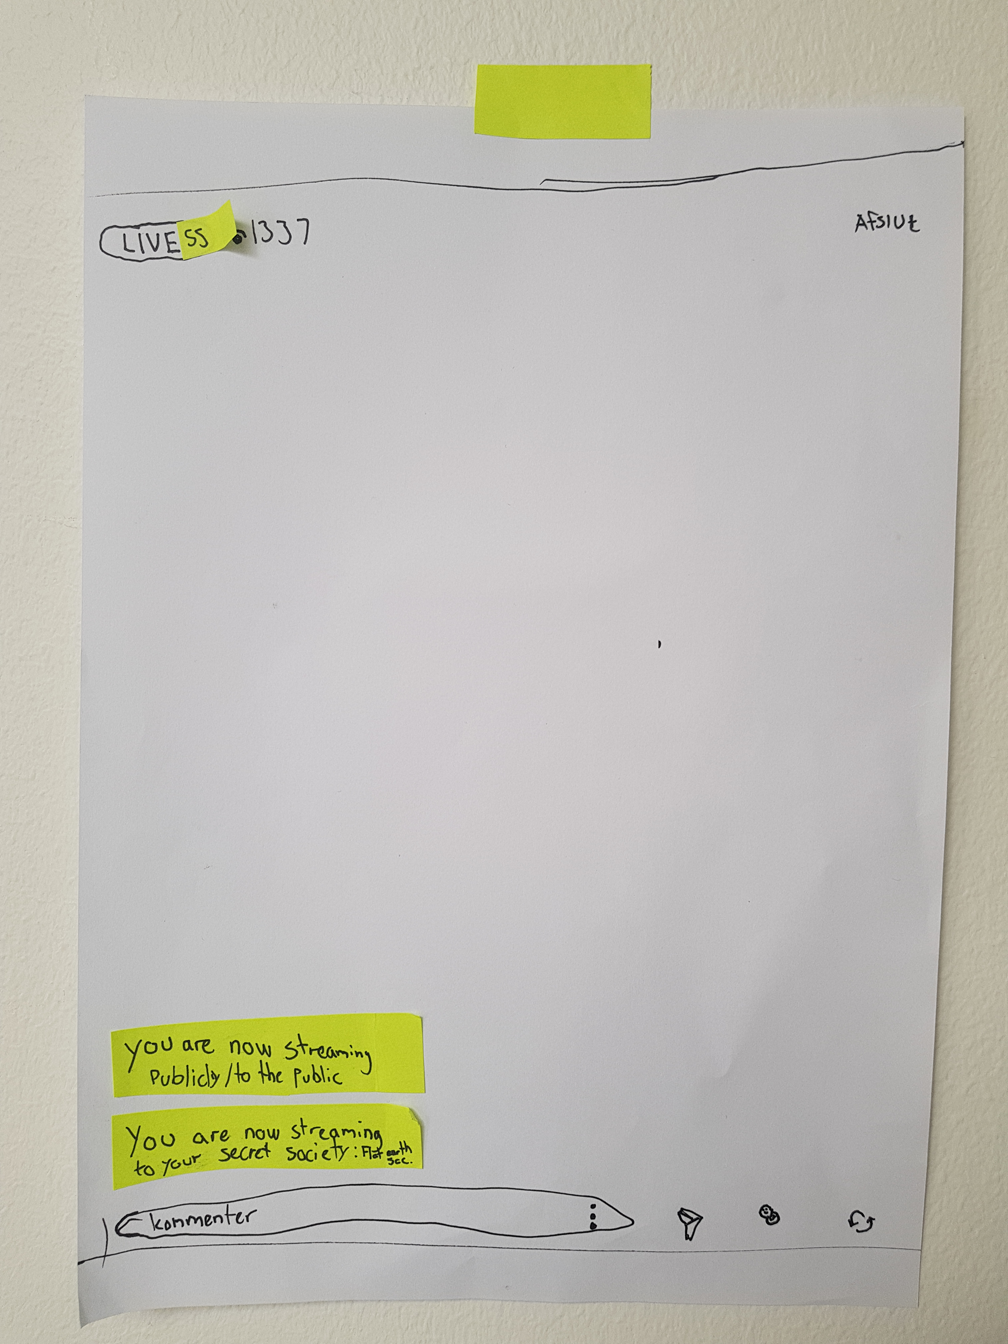 LIVE SS 1337
Afslut
You are now streaming
Publicly/to the public
You are now streaming
to your secret society: Flat earth
soc.
kommenter